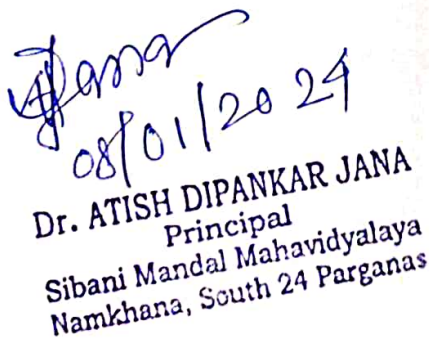 Jana
08/01/2024
Dr. ATISH DIPANKAR JANA
Principal
Sibani Mandal Mahavidyalaya
Namkhana, South 24 Parganas